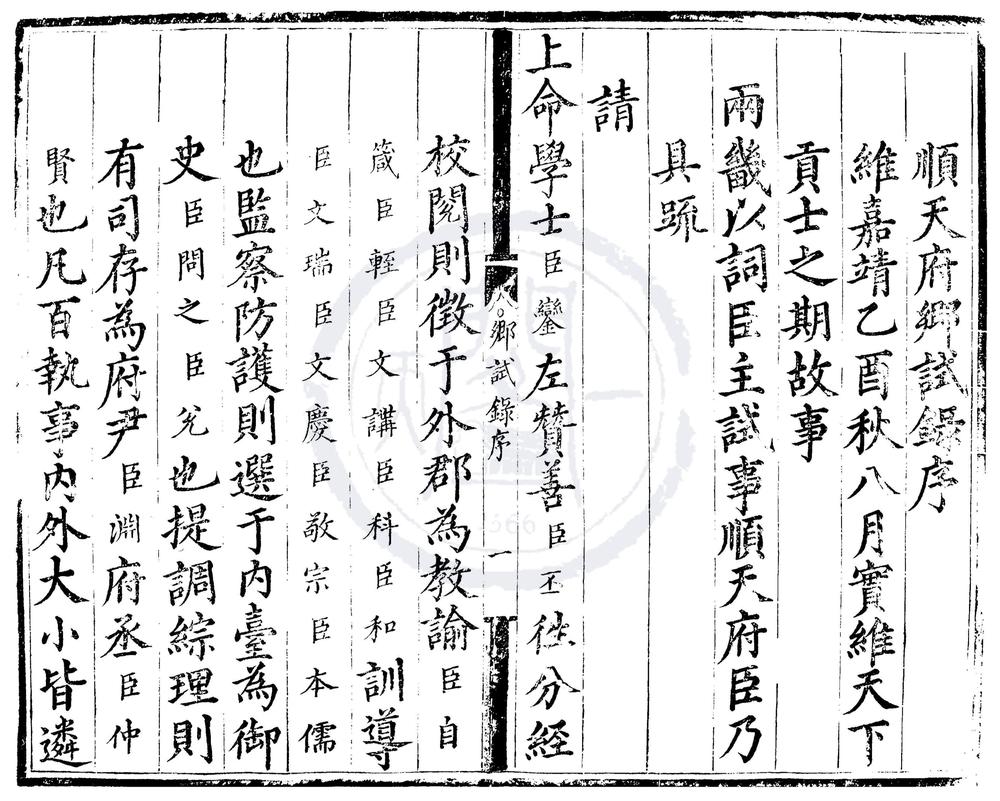 順天府鄉試錄序
維嘉靖乙酉秋八月實維天下
貢士之期故事
兩畿以詞臣主試事順天府臣乃
具疏
請
上命學士臣鑾左贊善臣丕往分經
鄉試錄序 一
校閱則徵于外郡為教諭臣自
箴臣輊臣文講臣科臣和訓導
臣文瑞臣文慶臣敬宗臣本儒
也監察防護則選于內臺為御
史臣問之臣兊也提調綜理則
有司存為府尹臣淵府丞臣仲
賢也凡百執事內外大小皆遴